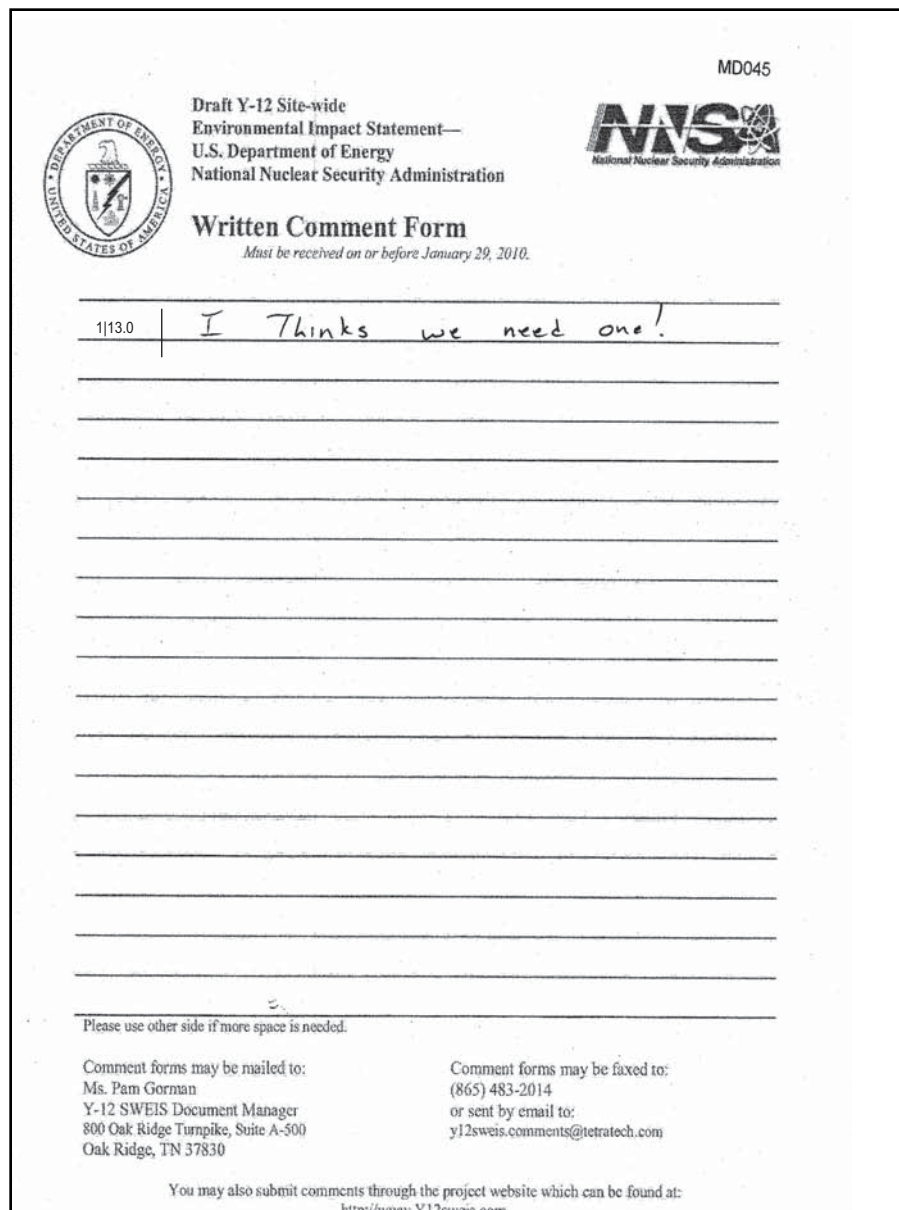 MD045
Draft Y-12 Site-wide
Environmental Impact Statement—
U.S. Department of Energy
National Nuclear Security Administration
DEPARTMENT OF ENERGY
UNITED STATES OF AMERICA
NNSA
National Nuclear Security Administration
Written Comment Form
Must be received on or before January 29, 2010.
1|13.0
I Thinks we need one!
Please use other side if more space is needed.
Comment forms may be mailed to:
Ms. Pam Gorman
Y-12 SWEIS Document Manager
800 Oak Ridge Turnpike, Suite A-500
Oak Ridge, TN 37830
Comment forms may be faxed to:
(865) 483-2014
or sent by email to:
y12sweis.comments@tetratech.com
You may also submit comments through the project website which can be found at: